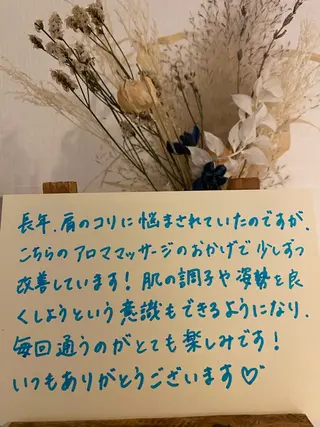 長年、肩のコリに悩まされていたのですが、
こちらのアロママッサージのおかげで少しずつ
改善しています！肌の調子や姿勢を良
くしようという意識もできるようになり、
毎回通うのがとても楽しみです！
いつもありがとうございます♡